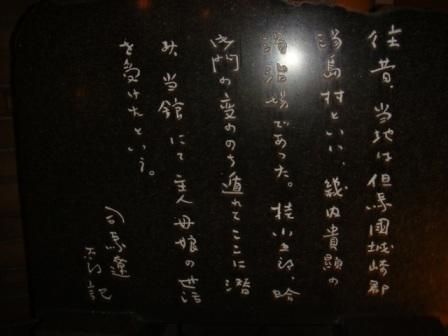 往昔、当地は但馬國城崎郡
湯島村といい、畿内貴顕の
湯治場であつた。桂小五郎、蛤
御門の変ののち遁れてここに潜
み、当館にて主人母娘の世話
を受けたという。
司馬遼
太郎記